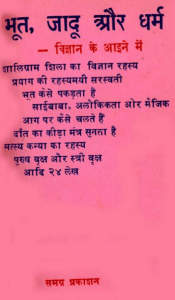 भूत, जादू और धर्म
— विज्ञान के आइने में
शालिग्राम शिला का विज्ञान रहस्य
प्रयाग की रहस्यमयी सरस्वती
भूत कैसे पकड़ता है
साईबाबा, अलौकिकता और मैजिक
आग पर कैसे चलते हैं
दाँत का कीड़ा मंत्र सुनता है
मत्स्य कन्या का रहस्य
पुरुष वृक्ष और स्त्री वृक्ष
आदि २४ लेख
समग्र प्रकाशन